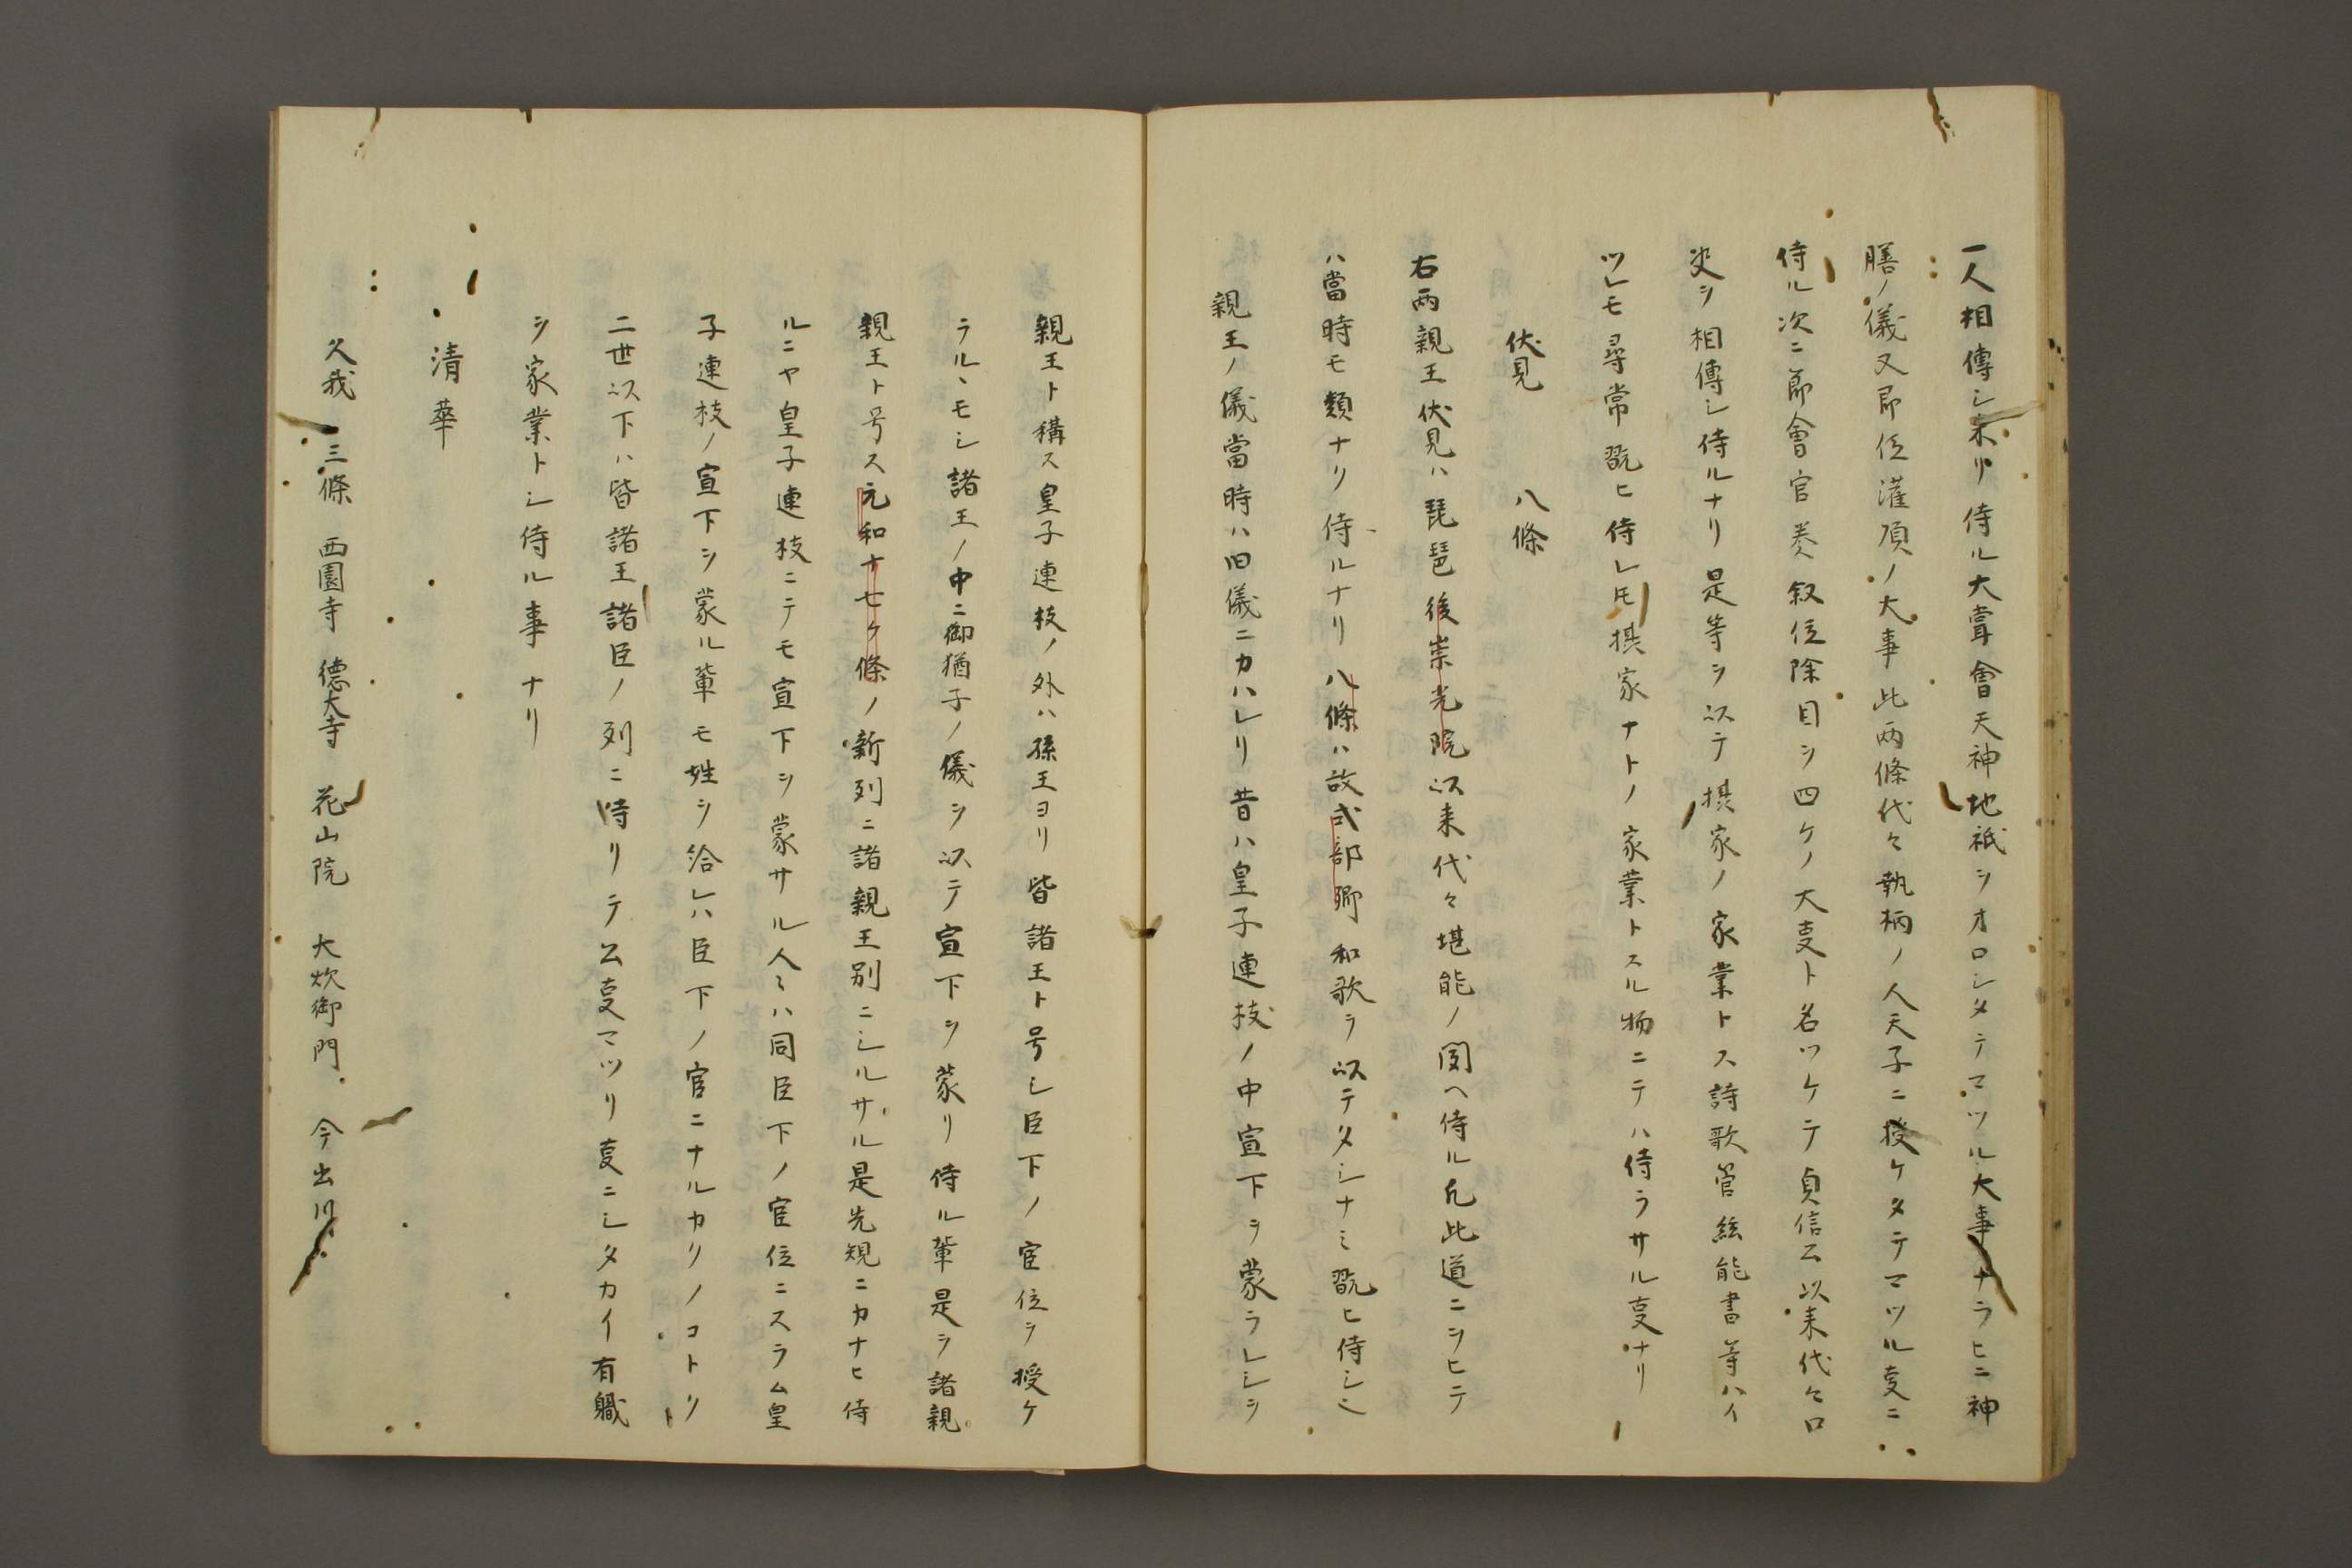 一人相傳シ来リ侍ル大嘗會天神地祇ヲオロシタテマツル大事ナラヒニ神
膳ノ儀又即位灌頂ノ大事此两條代々執柄ノ人天子ニ授ケタテマツル㕝ニ
侍ル次ニ節會官奏叙位除目ヲ四ケノ大㕝ト名ツケテ貞信公以来代々口
决ヲ相傳シ侍ルナリ是等ヲ以テ摂家ノ家業トス詩歌管絃能書等ハイ
ツレモ尋常翫ヒ侍レ𪜈摂家ナトノ家業トスル物ニテハ侍ラサル㕝ナリ
伏見　八條
右两親王伏見ハ琵琶後崇光院以来代々堪能ノ聞ヘ侍ル凡此道ニヲヒテ
ハ當時モ類ナリ侍ルナリ八條ハ故式部卿和歌ラ以テタシナミ翫ヒ侍シ
親王ノ儀當時ハ旧儀ニカハレリ昔ハ皇子連枝ノ中宣下ヲ蒙ラレシヲ
親王ト稱ス皇子連枝ノ外ハ孫王ヨリ皆諸王ト号シ臣下ノ官位ヲ授ケ
ラルヽモシ諸王ノ中ニ御猶子ノ儀ヲ以テ宣下ヲ蒙リ侍ル輩是ヲ諸親
親王ト号ス元和十七ケ條ノ新列ニ諸親王別ニシルサル是先規ニカナヒ侍
ルニヤ皇子連枝ニテモ宣下ヲ蒙サル人々ハ同臣下ノ官位ニスラム皇
子連枝ノ宣下ヲ蒙ル輩モ姓ヲ給レハ臣下ノ官ニナルカリノコトリ
二世以下ハ皆諸王諸臣ノ列ニ侍リテ公㕝マツリ㕝ニシタカイ有職
ヲ家業トシ侍ル事ナリ
清華
久我　三條　西園寺　德大寺　花山院　大炊御門　今出川